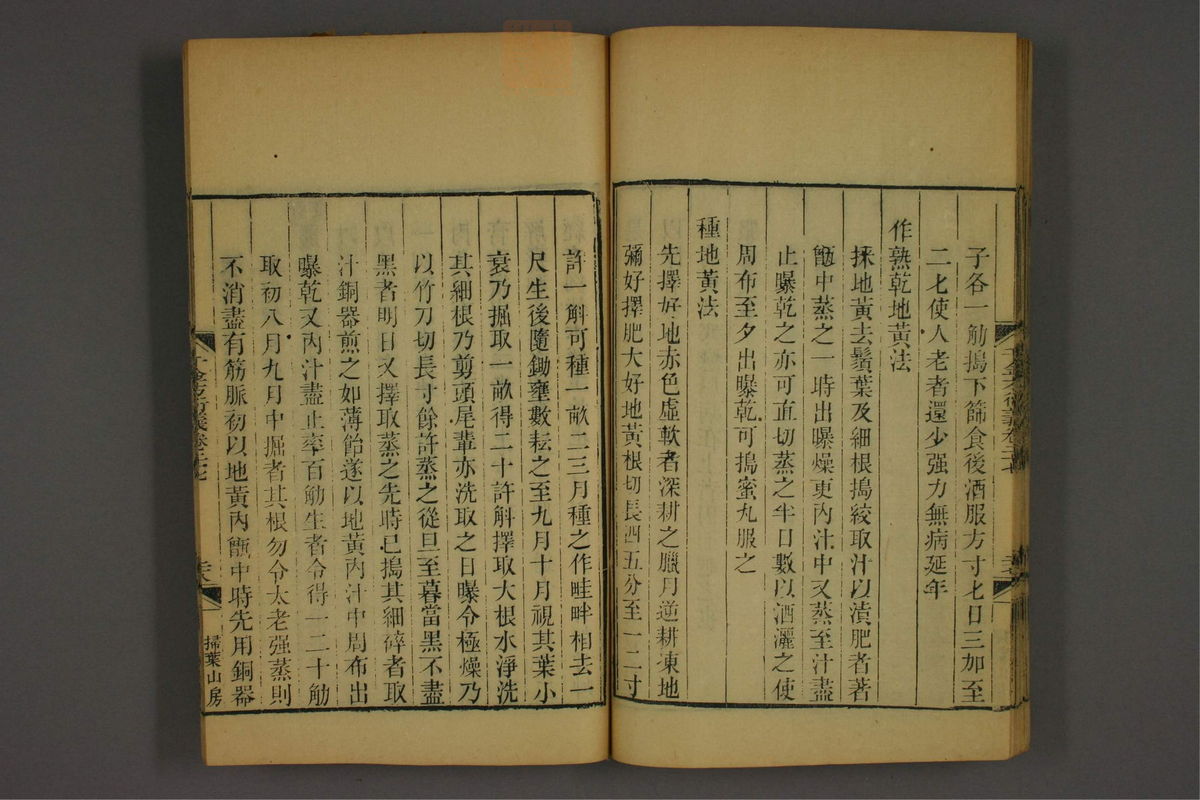 子各一觔搗下篩食後酒服方寸七日三加至
二七使人老者還少强力無病延年
作熟乾地黃法
採地黃去鬚葉及細根搗絞取汁以漬肥者著
甑中蒸之一時出曝燥更內汁中又蒸至汁盡
止曝乾之亦可直切蒸之半日數以酒灑之使
周布至夕出曝乾可搗蜜丸服之
種地黃法
先擇好地赤色虛軟者深耕之臘月逆耕凍地
彌好擇肥大好地黃根切長四五分至一二寸
許一斛可種一畝二三月種之作畦畔相去一
尺生後隨鋤壅數耘之至九月十月視其葉小
衰乃掘取一畝得二十許斛擇取大根水淨洗
其細根乃剪頭尾輩亦洗取之日曝令極燥乃
以竹刀切長寸餘許蒸之從旦至暮當黑不盡
黑者明日又擇取蒸之先時已搗其細碎者取
汁銅器煎之如薄飴遂以地黃內汁中周布出
曝乾又內汁盡止率百觔生者令得一二十觔
取初八月九月中掘者其根勿令太老强蒸則
不消盡有筋脈初以地黃內甑中時先用銅器
千金方衍義卷二十七
掃葉山房